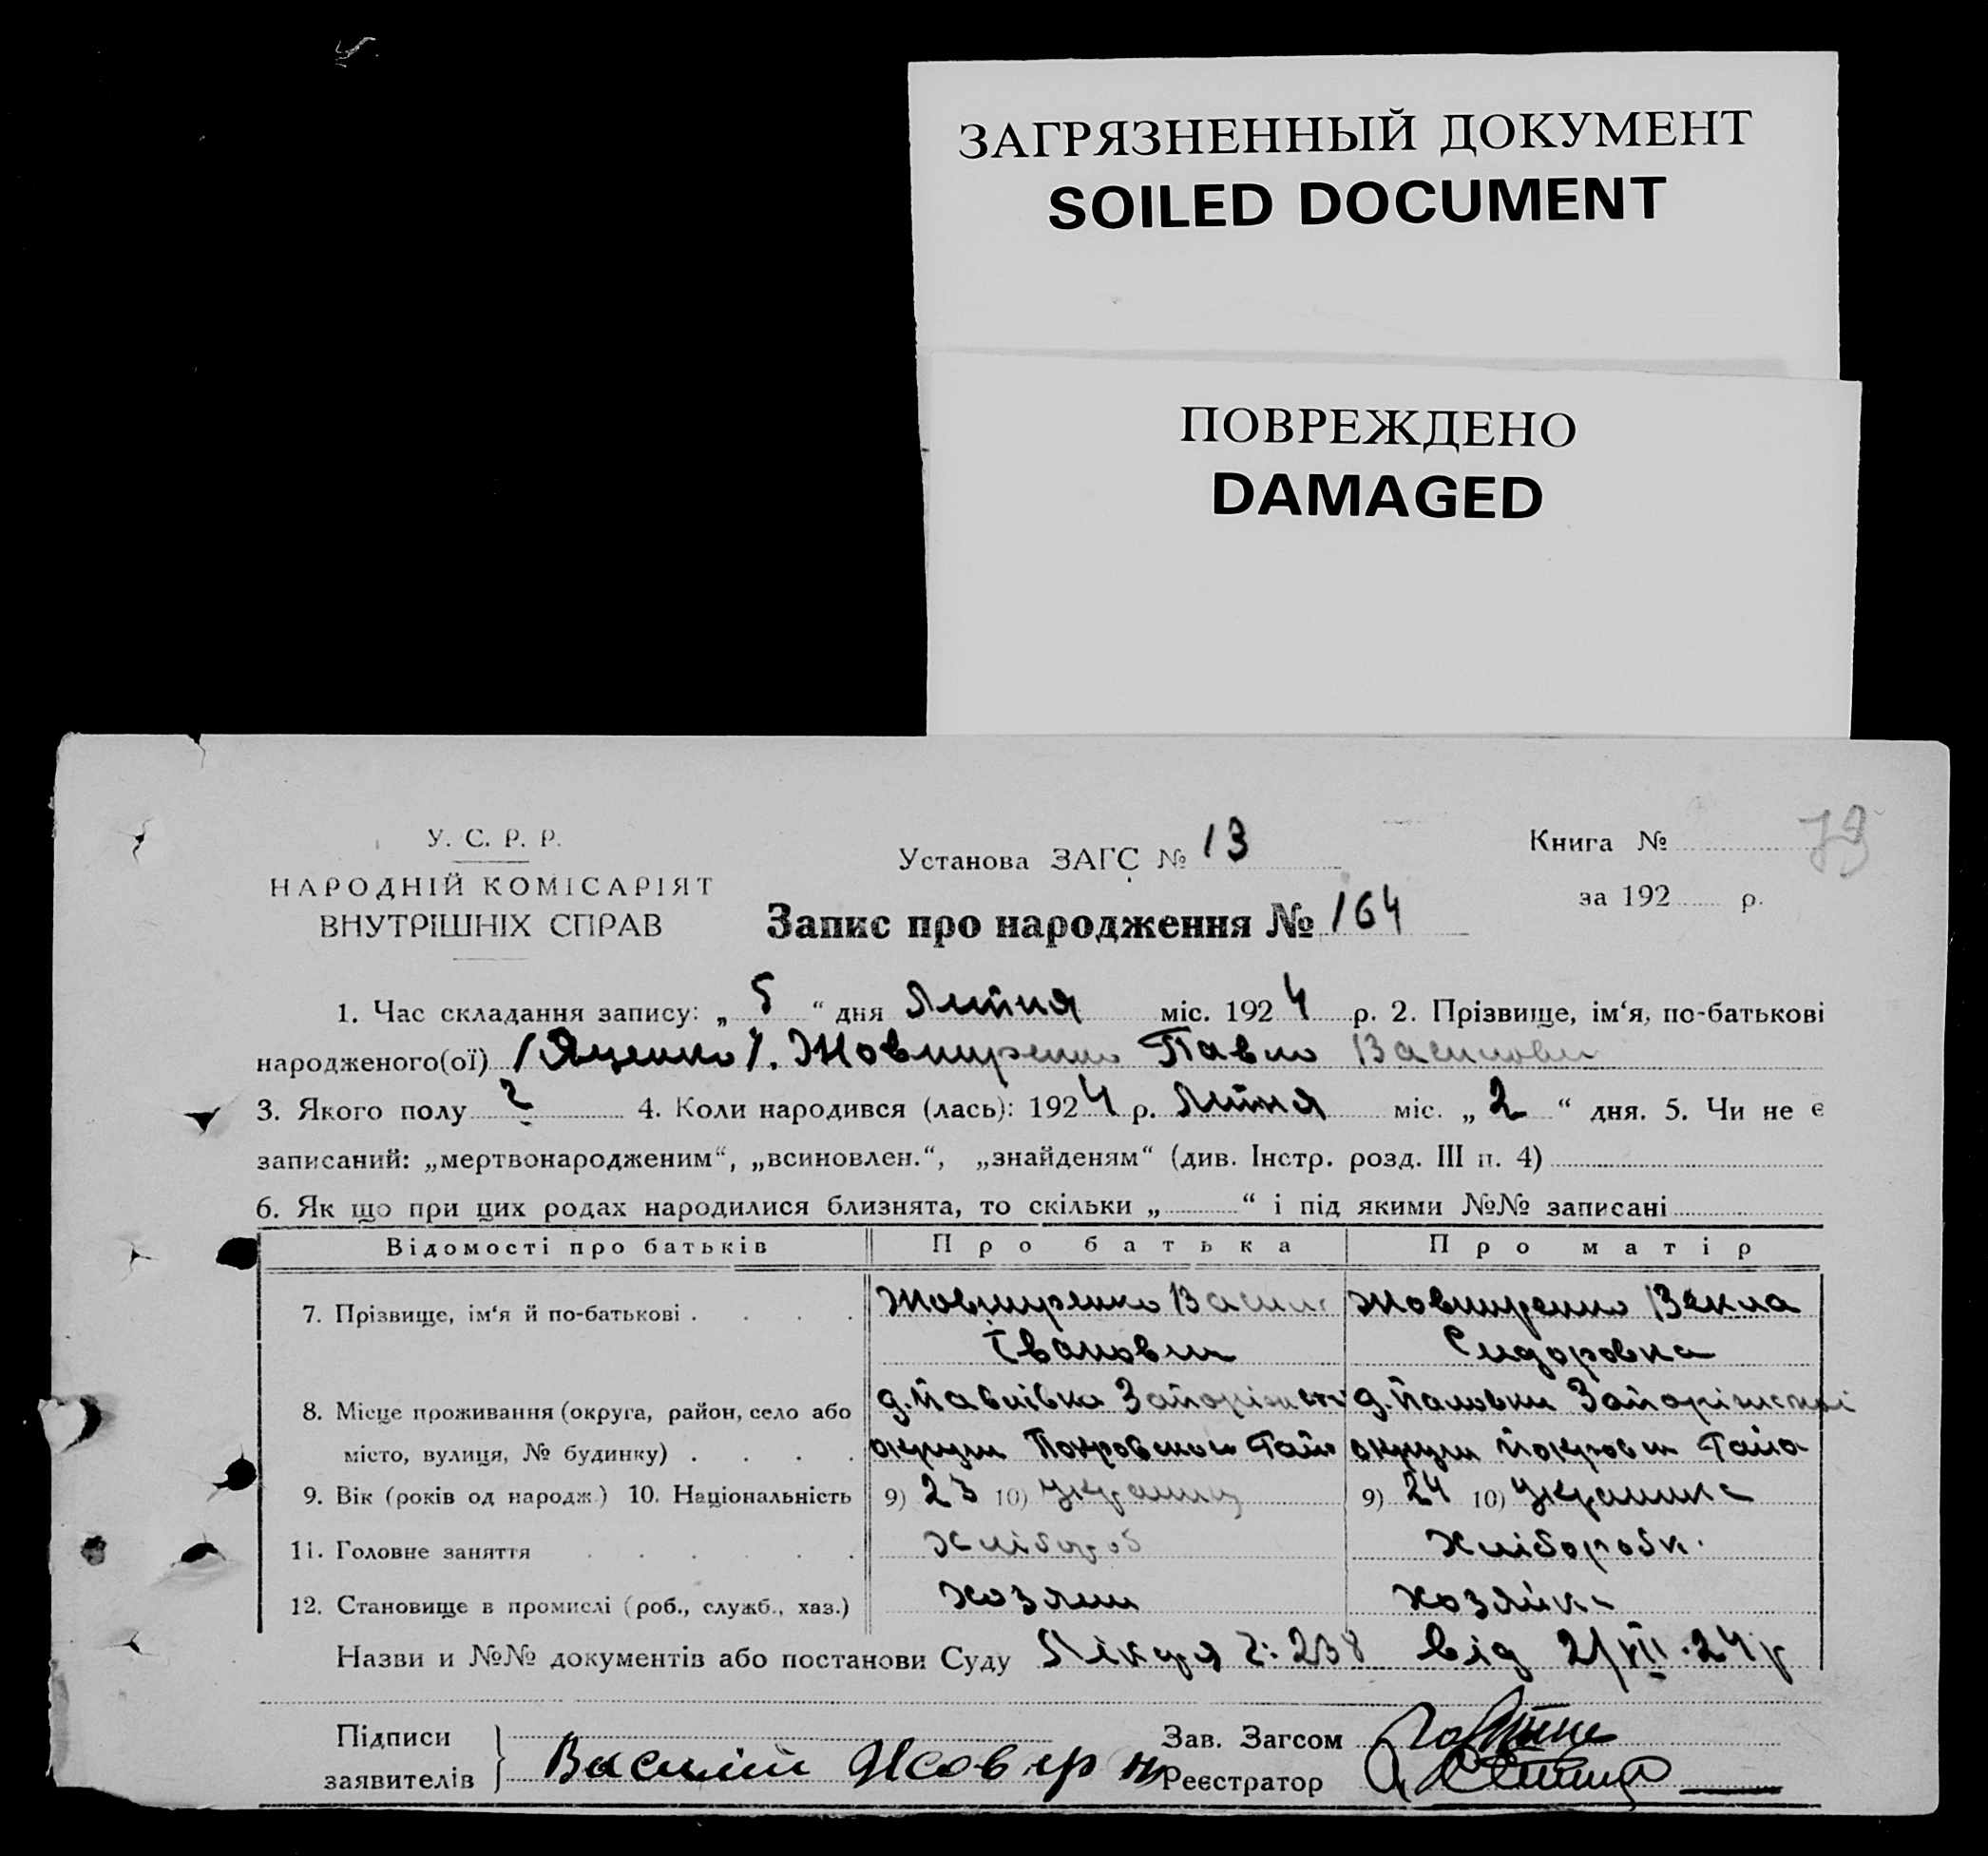 ЗАГРЯЗНЕННЫЙ ДОКУМЕНТ
SOILED DOCUMENT
ПОВРЕЖДЕНО
DAMAGED
У. С. Р. Р.
НАРОДНІЙ КОМІСАРІЯТ
ВНУТРІШНІХ СПРАВ
Установа ЗАГС № 13
Книга № 79
за 192 р.
Запис про народження № 164
1. Час складання запису: „ 5 “ дня Липня міс. 1924 р. 2. Прізвище, ім‘я, по-батькові
народженого(ої) /Яценко/. Жовниренко Павло Василови
3. Якого полу ч. 4. Коли народився (лась): 1924 р. Липня міс. „ 2 “ дня. 5. Чи не є
записаний: „мертвонародженим“, „всиновлен.“, „знайденям“ (див. Інстр. розд. III п. 4)
6. Як що при цих родах народилися близнята, то скільки „ “ і під якими №№ записані
Відомості про батьків Про батька Про матір
7. Прізвище, ім‘я й по-батькові . . . . Жовниренко Васил Жовниренко Векла
Іванович Сидоровна
8. Місце проживання (округа, район, село або д. Павлівка Запоріжської д. Запоріжської
місто, вулиця, № будинку) . . . . округи Покровсько округи Покровск
9. Вік (років од народж.) 10. Національність 9) 23 10) Українц 9) 24 10) Українка
11. Головне заняття . . . . . . Хлібороб Хлібororобк.
12. Становище в промислі (роб., служб., хаз.) Хозяин Хозяйка
Назви и №№ документів або постанови Суду Лікаря ч: 238 від 2/VII-24 р
Підписи
заявителів Василий Жов
Зав. Загсом
Реєстратор